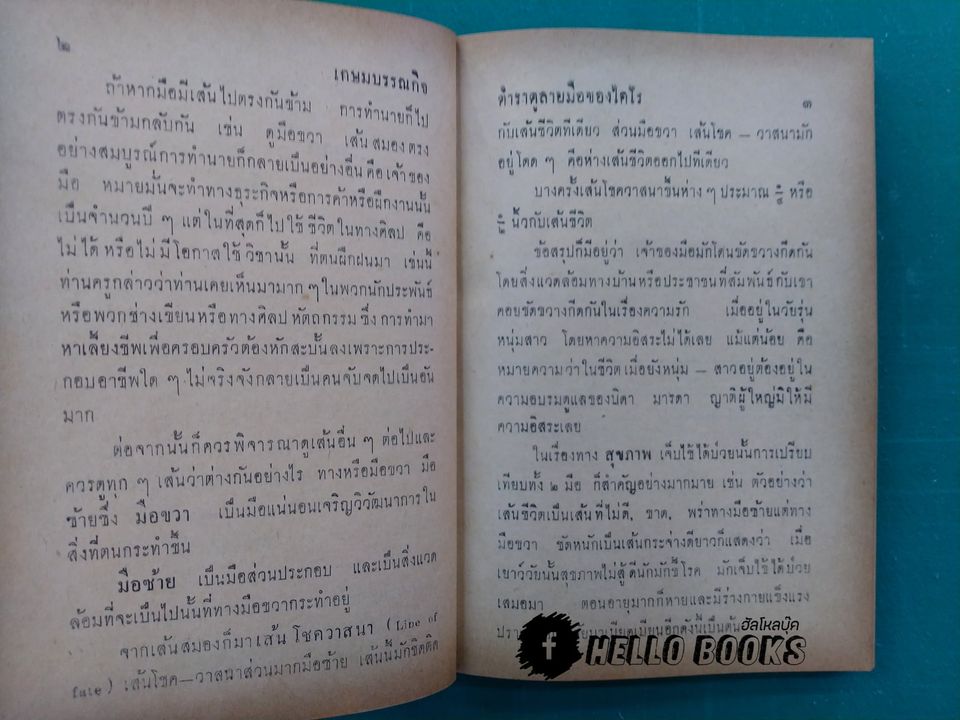 ๒
เกษมบรรณกิจ
ถ้าหากมือมีเส้นไปตรงกันข้าม การทำนายก็ไป
ตรงกันข้ามกลับกัน เช่น ดูมือขวา เส้นสมองตรง
อย่างสมบูรณ์การทำนายก็กลายเป็นอย่างอื่นคือเจ้าของ
มือ หมายมั่นจะทำทางธุระกิจหรือการค้าหรือฝึกงานนั้น
เป็นจำนวนปี ๆ แต่ในที่สุดก็ไปใช้ชีวิตในทางศิลป คือ
ไม่ได้ หรือไม่มีโอกาสใช้วิชานั้น ที่ตนฝึกฝนมา เช่นนี้
ท่านครูกล่าวว่าท่านเคยเห็นมามาก ๆ ในพวกนักประพันธ์
หรือพวกช่างเขียนหรือทางศิลปหัตถกรรม ซึ่งการทำมา
หาเลี้ยงชีพเพื่อครอบครัวต้องหักสะบั้นลงเพราะการประ-
กอบอาชีพใด ๆ ไม่จริงจังกลายเป็นคนจับจดไปเป็นอัน
มาก
ต่อจากนั้นก็ควรพิจารณาดูเส้นอื่น ๆ ต่อไปและ
ควรดูทุก ๆ เส้นว่าต่างกันอย่างไร ทางหรือมือขวา มือ
ซ้ายซึ่ง มือขวา เป็นมือแน่นอนเจริญวิวัฒนาการใน
สิ่งที่ตนกระทำขึ้น
มือซ้าย เป็นมือส่วนประกอบ และเป็นสิ่งแวด
ล้อมที่จะเป็นไปนั้นที่ทางมือขวากระทำอยู่
จากเส้นสมองก็มาเส้นโชควาสนา (Line of
fate) เส้นโชค—วาสนาส่วนมากมือซ้าย เส้นนี้มักชิดติด
ตำราดูลายมือของไคโร
๓
กับเส้นชีวิตทีเดียว ส่วนมือขวา เส้นโชค — วาสนามัก
อยู่โดด ๆ คือห่างเส้นชีวิตออกไปทีเดียว
บางครั้งเส้นโชควาสนาขึ้นห่าง ๆ ประมาณ หรือ
นิ้วกับเส้นชีวิต
ข้อสรุปก็มีอยู่ว่า เจ้าของมือมักโดนขัดขวางกีดกัน
โดยสิ่งแวดล้อมทางบ้านหรือประชาชนที่สัมพันธ์กับเขา
คอยขัดขวางกีดกันในเรื่องความรัก เมื่ออยู่ในวัยรุ่น
หนุ่มสาว โดยหาความอิสระไม่ได้เลย แม้แต่น้อย คือ
หมายความว่าในชีวิตเมื่อยังหนุ่ม — สาวอยู่ต้องอยู่ใน
ความอบรมดูแลของบิดา มารดา ญาติผู้ใหญ่มิให้มี
ความอิสระเลย
ในเรื่องทาง สุขภาพ เจ็บไข้ได้ป่วยนั้นการเปรียบ
เทียบทั้ง ๒ มือ ก็สำคัญอย่างมากมาย เช่น ตัวอย่างว่า
เส้นชีวิตเป็นเส้นที่ไม่ดี, ขาด, พร่าทางมือซ้ายแต่ทาง
มือขวา ชัดหนักเป็นเส้นกระจ่างดียาวก็แสดงว่า เมื่อ
เยาว์วัยนั้นสุขภาพไม่สู้ดีนักมักขี้โรค มักเจ็บไข้ได้ป่วย
เสมอมา ตอนอายุมากก็หายและมีร่างกายแข็งแรง
เบียดเบียนอีกดังนี้เป็นต้น
ฮัลโหลบุ๊ค
f HELLO BOOKS